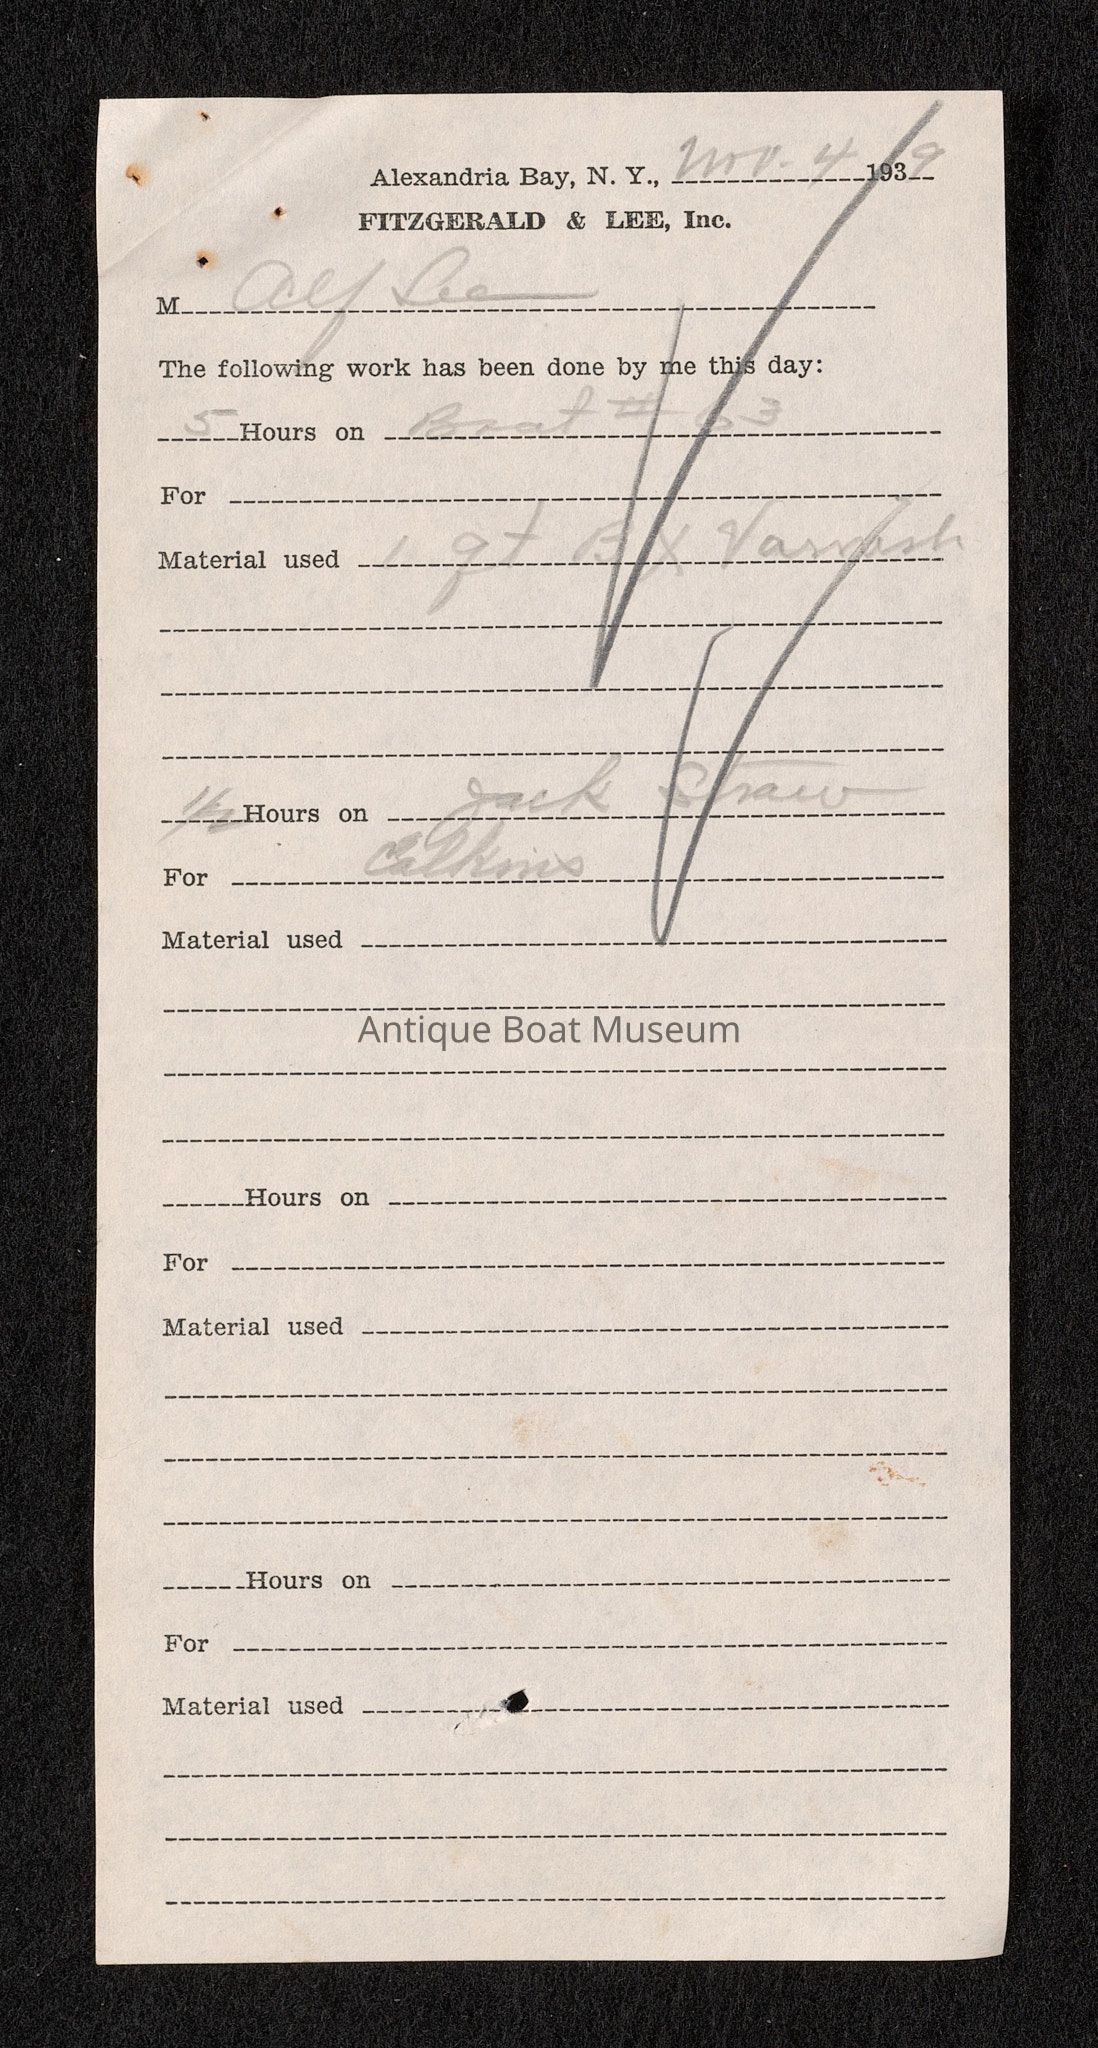 Alexandria Bay, N. Y., Nov. 4 1939
FITZGERALD & LEE, Inc.
M Alf Lee
The following work has been done by me this day:
5 Hours on Boat # 63
For
Material used 1 qt BX Varnish
Hours on Jack Straw
For Calkins
Material used
Antique Boat Museum
Hours on
For
Material used
Hours on
For
Material used